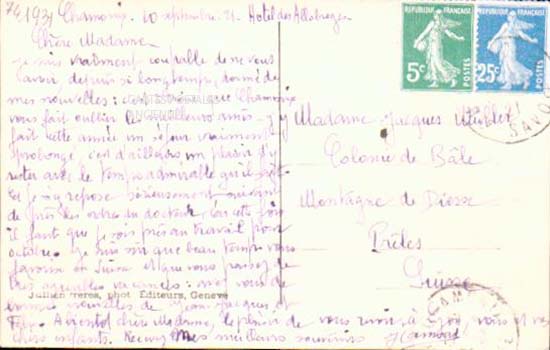 74193
Chamonix 10 septembre 21. Hotel des Allobroges
Chère Madame
je suis vraiment coupable de ne vous
avoir, depuis si longtemps, donné de
mes nouvelles: Chamonix
vous fait oublier vos meilleurs amis - j'y
fait cette année un séjour vraiment
prolongé, c'est d'ailleurs un plaisir d'y
rester avec le temps admirable qu'il fait
et je m'y repose sérieusement suivant
de près les ordres du docteur, car cette fois
il faut que je sois en travail pour
octobre. Je suis sûr que beau temps vous
favorise en Suisse et que vous passez de
agréables vacances: avez vous de
bonnes nouvelles de Jean-Jacques et
A bientôt chère Madame, le plaisir de vous revoir à vous et vos
chers enfants. Recevez mes meilleurs souvenirs
Jullien frères, phot. Editeurs, Genève
REPUBLIQUE FRANÇAISE
5c
POSTES
REPUBLIQUE FRANÇAISE
25c
POSTES
21
SAVOIE
Madame Jacques
Colonie de Bâle
Montagne de Diesse
Prêles
Suisse